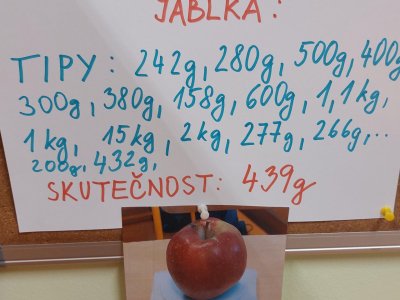 JABLKA:
TIPY: 242g, 280g, 500g, 400g
300g, 380g, 158g, 600g, 1,1kg,
1kg, 15kg, 2kg, 277g, 266g,..
200g, 432g,
SKUTEČNOST: 439g